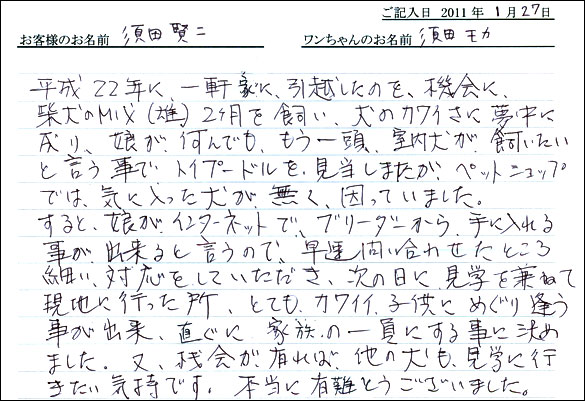 ご記入日 2011年 1月27日
お客様のお名前 須田 賢二 ワンちゃんのお名前 須田 モカ
平成22年に、一軒家に、引越したのを、機会に、
柴犬のMIX(雄)2ヶ月を飼い、犬のカワイさに夢中に
成り、娘が、何んでも、もう一頭、室内犬が、飼いたい
と言う事で、トイプードルを、見当しましたが、ペットショップ
では、気に入った犬が、無く、困っていました。
すると、娘が、インターネットで、ブリーダーから、手に入れる
事が、出来ると言うので、早速問い合わせたところ
細い、対応をしていただき、次の日に、見学を兼ねて
現地に行った所、とても、カワイイ、子供にめぐり逢う
事が出来、直ぐに、家族の一員にする事に決め
ました。又、機会が、有れば、他の犬も、見学に行
きたい気持です。本当に有難とうございました。